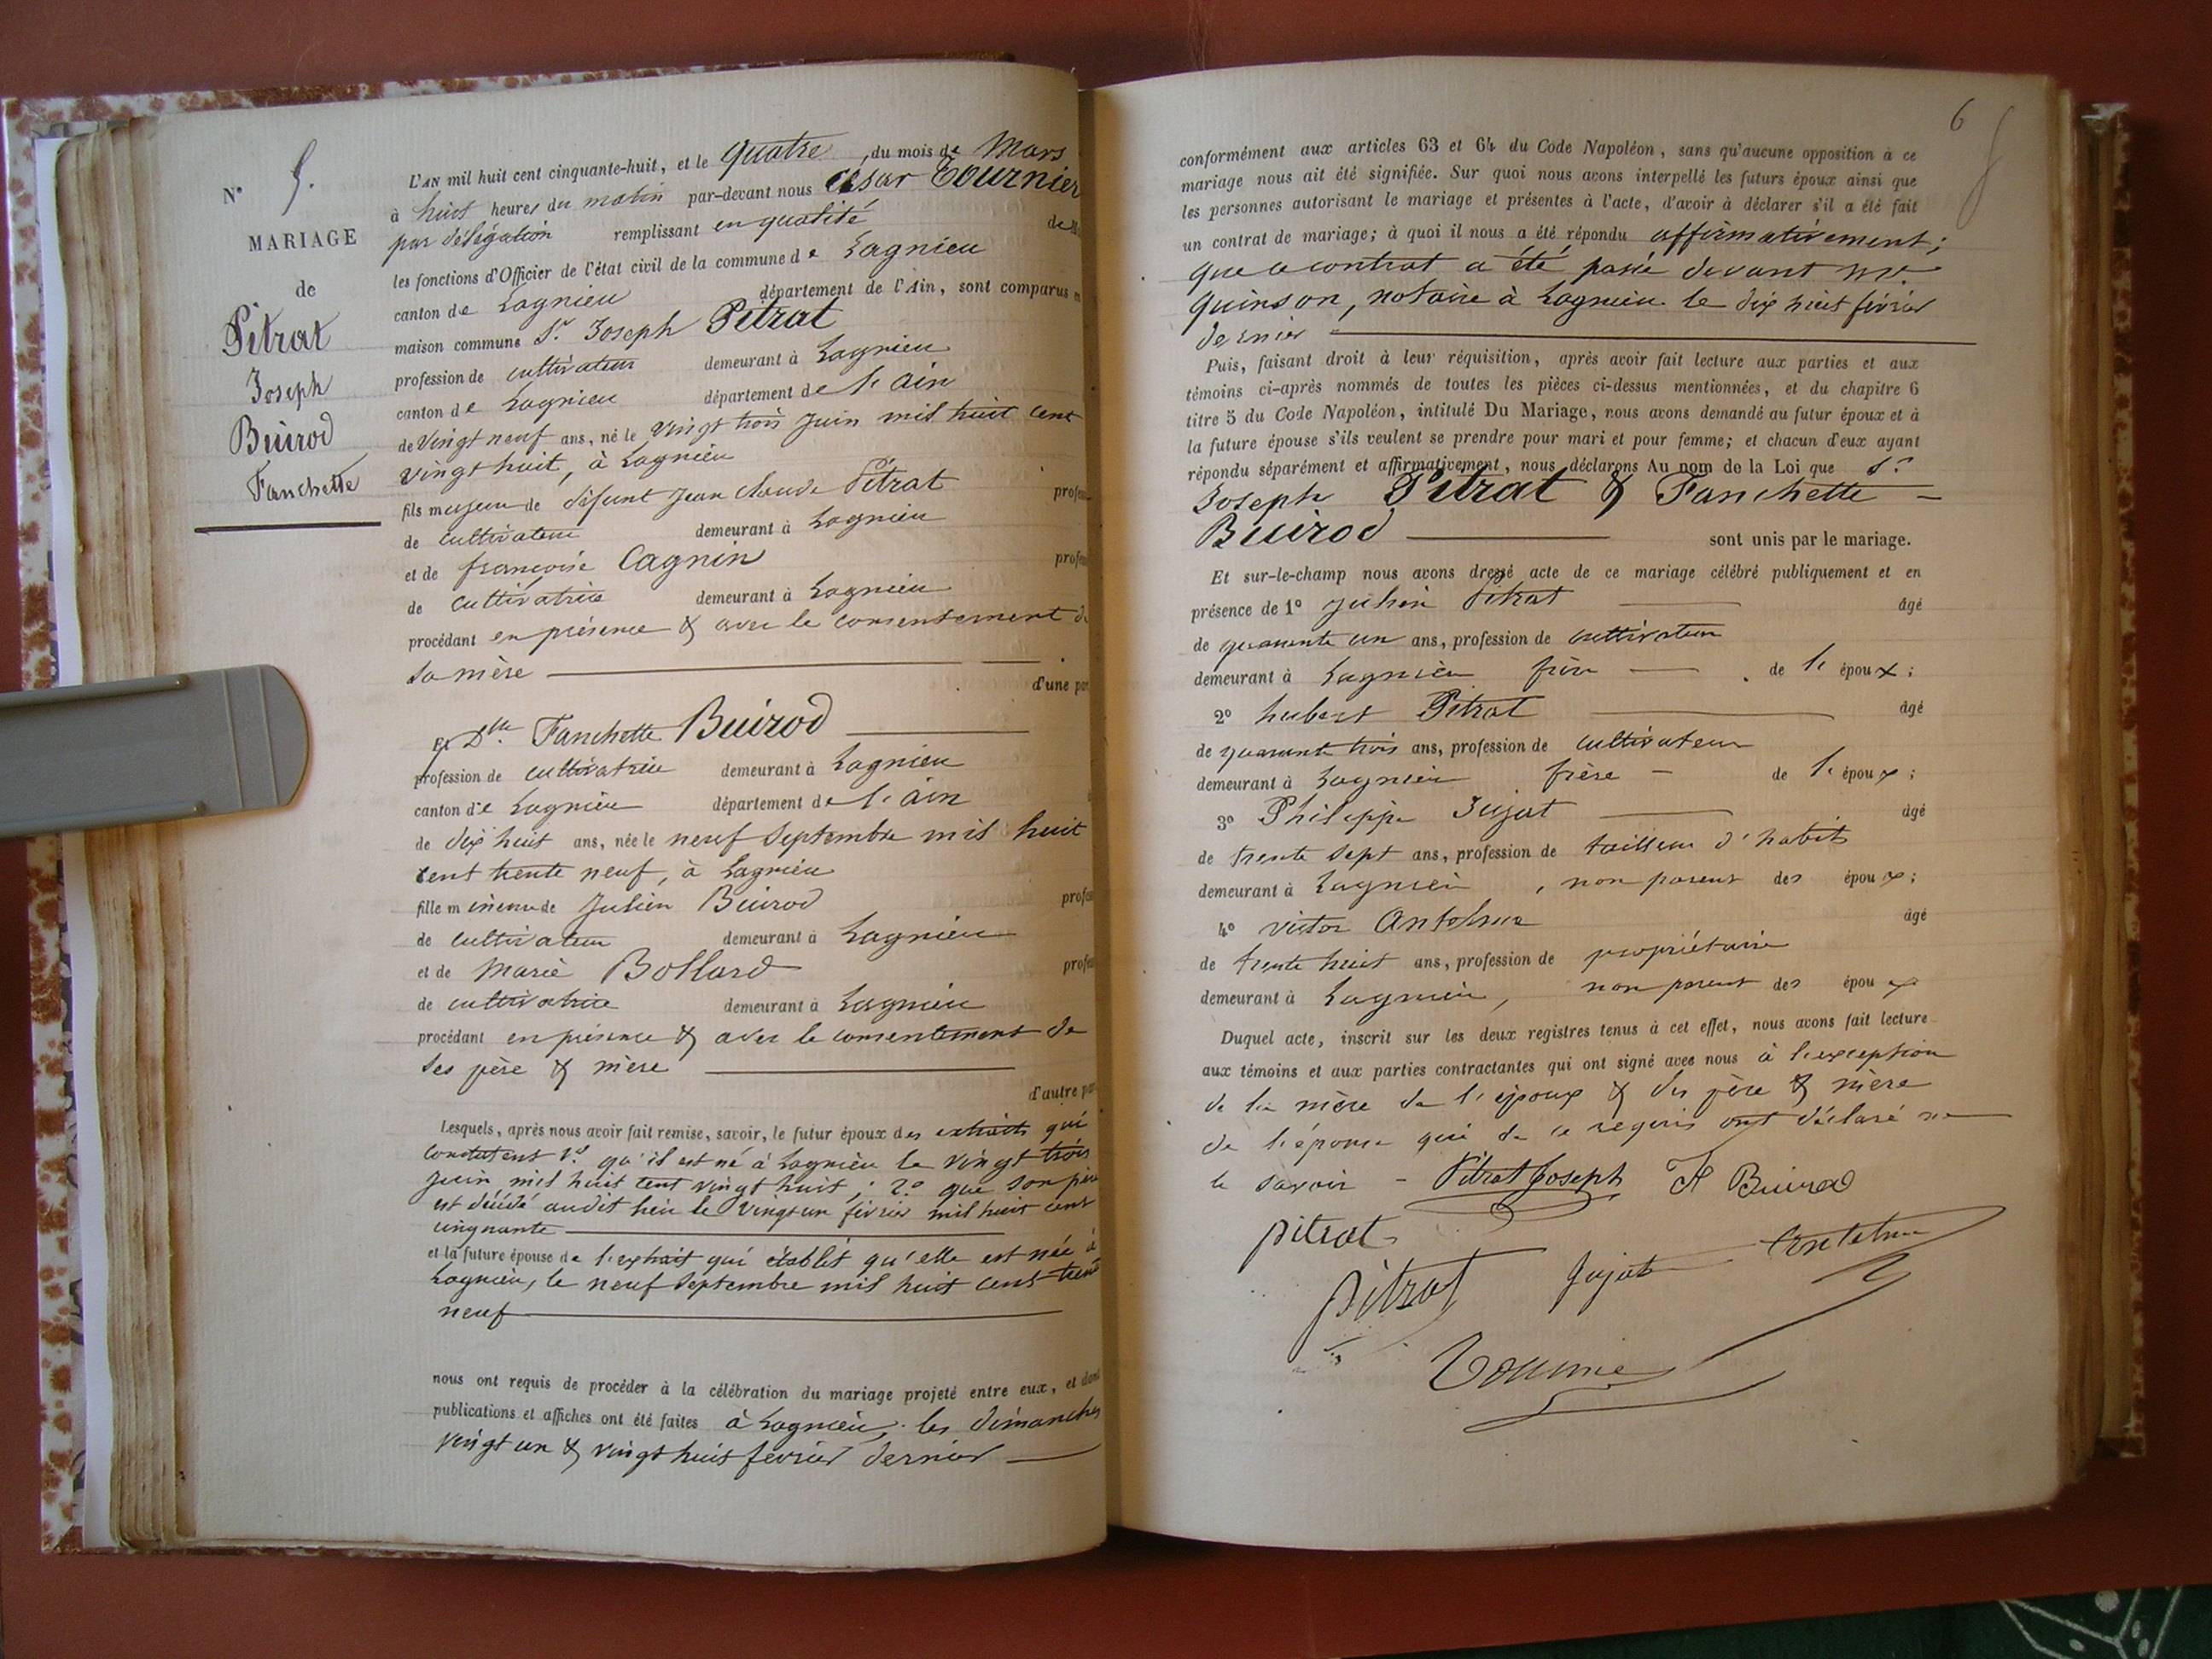 N° 5.
MARIAGE
de
Pitrat
Joseph
Buirod
Fanchette
L'AN mil huit cent cinquante-huit, et le quatre, du mois de Mars
à huit heures du matin par-devant nous César Tournier
par délégation remplissant en qualité de
les fonctions d'Officier de l'état civil de la commune de Lagnieu
canton de Lagnieu département de l'Ain, sont comparus en
maison commune Sr. Joseph Pitrat
profession de cultivateur demeurant à Lagnieu
canton de Lagnieu département de l'ain
de vingt neuf ans, né le vingt trois juin mil huit cent
vingt huit, à Lagnieu
fils majeur de défunt Jean Claude Pitrat profes
de cultivateur demeurant à Lagnieu
et de françoise Cagnin profes
de cultivatrice demeurant à Lagnieu
procédant en présence & avec le consentement de
sa mère
d'une par
Et Dlle. Fanchette Buirod
profession de cultivatrice demeurant à Lagnieu
canton de Lagnieu département de l'ain
de dix huit ans, née le neuf Septembre mil huit
cent trente neuf, à Lagnieu
fille mineure de Julien Buirod profes
de cultivateur demeurant à Lagnieu
et de Marie Bollard profes
de cultivatrice demeurant à Lagnieu
procédant en présence & avec le consentement de
ses père & mère
d'autre par
Lesquels, après nous avoir fait remise, savoir, le futur époux des extraits qui
constatent 1° qu'il est né à Lagnieu le vingt trois
juin mil huit cent vingt huit; 2° que son père
est décédé audit lieu le vingt un février mil huit cent
cinquante
et la future épouse de l'extrait qui établit qu'elle est née à
Lagnieu, le neuf Septembre mil huit cent trente
neuf
nous ont requis de procéder à la célébration du mariage projeté entre eux, et dont
publications et affiches ont été faites à Lagnieu, les dimanches
vingt un & vingt huit février dernier
6
conformément aux articles 63 et 64 du Code Napoléon, sans qu'aucune opposition à ce
mariage nous ait été signifiée. Sur quoi nous avons interpellé les futurs époux ainsi que
les personnes autorisant le mariage et présentes à l'acte, d'avoir à déclarer s'il a été fait
un contrat de mariage; à quoi il nous a été répondu affirmativement;
que ce contrat a été passé devant Me.
quinson, notaire à Lagnieu le dix huit février
dernier
Puis, faisant droit à leur réquisition, après avoir fait lecture aux parties et aux
témoins ci-après nommés de toutes les pièces ci-dessus mentionnées, et du chapitre 6
titre 5 du Code Napoléon, intitulé Du Mariage, nous avons demandé au futur époux et à
la future épouse s'ils veulent se prendre pour mari et pour femme; et chacun d'eux ayant
répondu séparément et affirmativement, nous déclarons Au nom de la Loi que Sr.
Joseph Pitrat & Fanchette
Buirod sont unis par le mariage.
Et sur-le-champ nous avons dressé acte de ce mariage célébré publiquement et en
présence de 1° Julien Pitrat âgé
de quarante un ans, profession de cultivateur
demeurant à Lagnieu frère de l'époux;
2° hubert Pitrat âgé
de quarante trois ans, profession de cultivateur
demeurant à Lagnieu frère de l'époux;
3° Philippe Jujat âgé
de trente sept ans, profession de tailleur d'habits
demeurant à Lagnieu, non parent des époux;
4° victor âgé
de trente huit ans, profession de propriétaire
demeurant à Lagnieu, non parent des époux
Duquel acte, inscrit sur les deux registres tenus à cet effet, nous avons fait lecture
aux témoins et aux parties contractantes qui ont signé avec nous à l'exception
de la mère de l'époux & des père & mère
de l'épouse qui de ce requis ont déclaré ne
le savoir - Pitrat Joseph F Buirod
pitrat
pitrat Jujat
Tournier